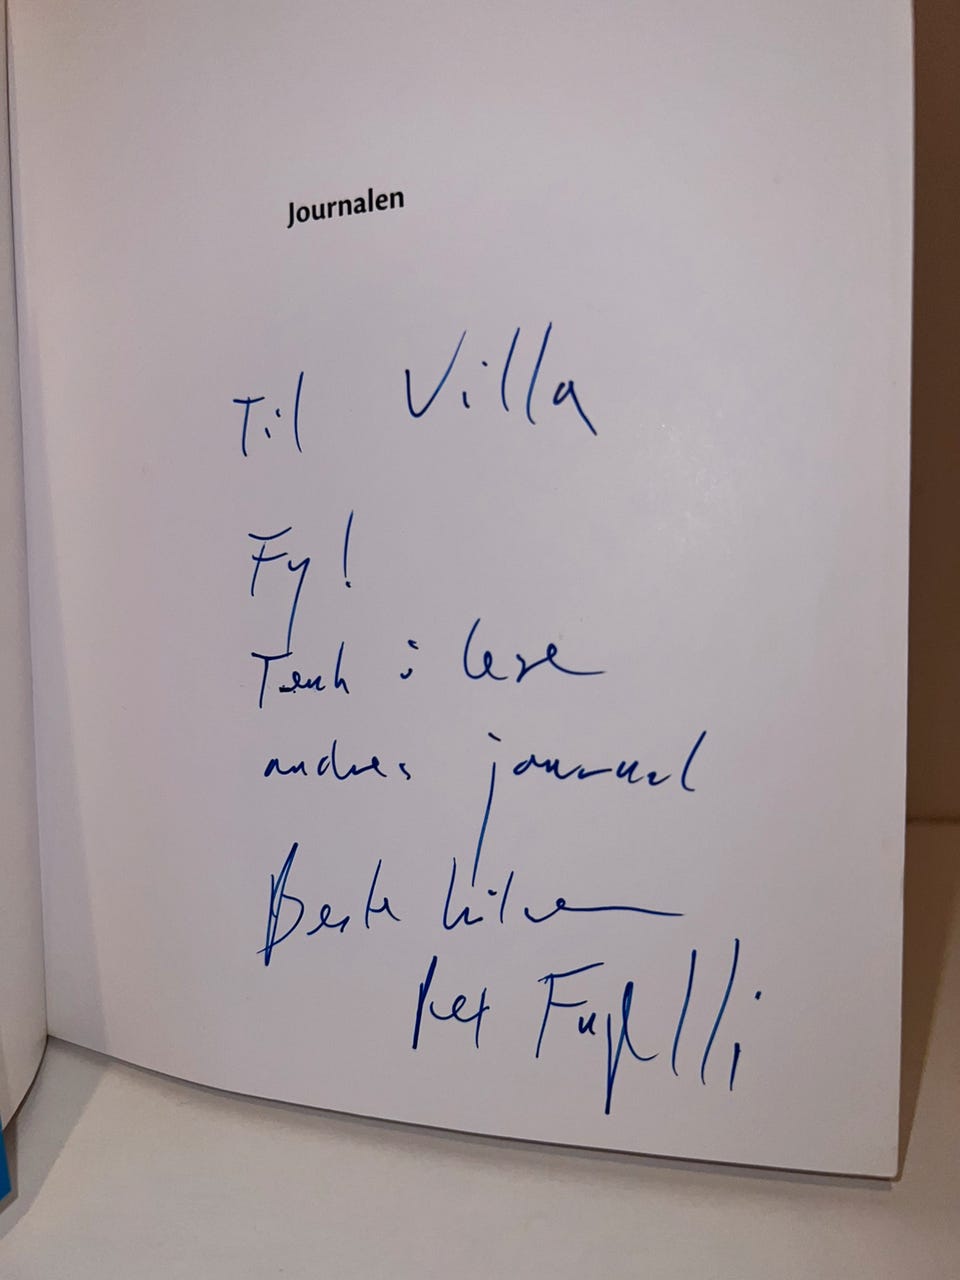 Journalen
Til Villa
Fy!
Tenk å lese
andres journal
Beste hilsen
Per Fugelli